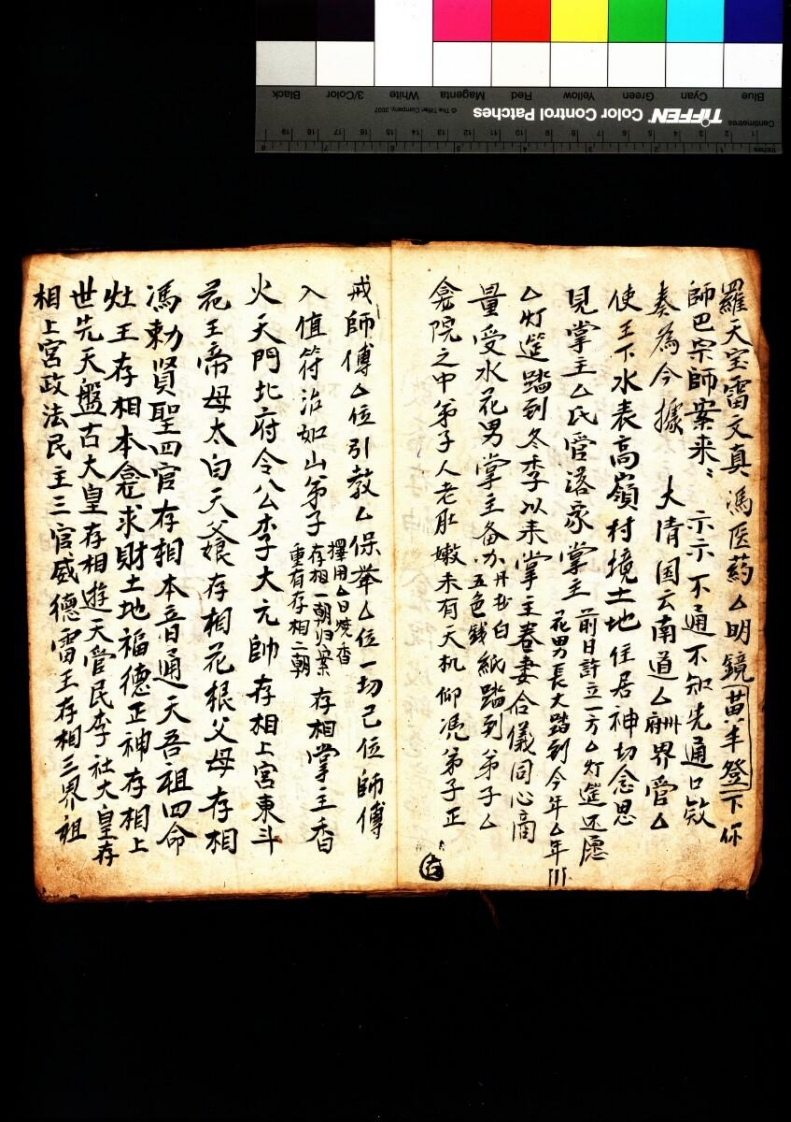 Blue
Cyan
Green
Yellow
Red
Magenta
White
3/Color
Black
Centimetres
TIFFEN Color Control Patches
© The Tiffen Company, 2007
Inches
羅天宝雷文真 馮医葯厶明鏡 苗羊燈 下你
師巴宗師案来〻 示示不通不知先通口
奏為今據 大清国云南道厶府州界管厶
使王下水表高嶺村境土地住居神切念思
見掌主厶氏管落家掌主 前日許立一方厶灯筵还愿
花男長大踏到今年厶年
厶灯筵踏到冬季以来掌主眷妻合儀同心商
量受水花男掌主备办丹书白五色錢紙踏到弟子厶
龛院之中弟子人老肚嫩未有天机仰凭弟子正
戒師傅厶位引教厶保举厶位一切己位師傅
入值符治如山弟子 擇用厶日燒香
存相一朝归案
重有存相二朝
存相掌主香
火天門北府令公李子大元帥存相上宮東斗
花王帝母太白天父娘存相花根父母存相
馮勅賢聖四官存相本音通天吾祖四命
灶王存相本龛求財土地福德正神存相上
世先天盤古大皇存相遊天管民李社大皇存
相上宮政法民主三官威德雷王存相三界祖